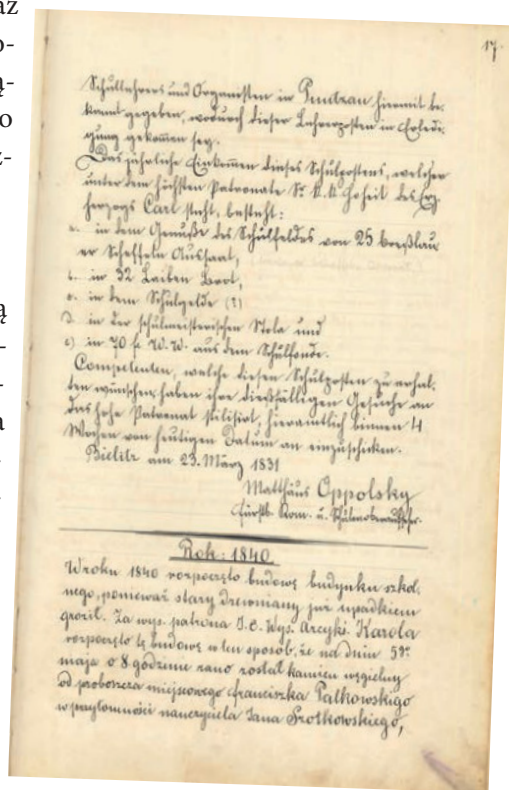 az
o-
ą-
o
z-
ą
-
-
a
17.
Schullehrers und Organisten in Pruchna hiermit be-
kannt gegeben, wodurch dieser Lehrerposten in Erledi-
gung gekommen sey.
Das jährliche Einkommen dieses Schulpostens, welcher
unter dem höchsten Patronate Sr k.k. Hoheit des Erz-
herzogs Carl steht, besteht:
a. in dem Genuße des Schulfeldes von 25 breßlau-
er Scheffeln Aussaat,
b. in 32 Laiben Brot,
c. in dem Schulgelde (?)
d. in der schulmeisterischen Stola und
e) in 70 f. W.W. aus dem Schulfonde.
Competenten, welche diesen Schulposten zu erhal-
ten wünschen, haben ihre dießfälligen Gesuche an
das hohe Patronat stilisirt, hieramtlich binnen 4
Wochen von heutigen Datum an einzuschicken.
Bielitz am 23. März 1831
Matthäus Oppolsky
fürstb. Kom. u. Schulenoberaufseher.
Rok: 1840.
W roku 1840 rozpoczęto budowę budynku szkol-
nego, ponieważ stary drewniany już upadkiem
groził. Za wys. patrona J.C. Wys. Arcyks. Karola
rozpoczęto tę budowę w ten sposób, że na dniu 5go
maja o 8 godzinie rano został kamień węgielny
od proboszcza miejscowego Franciszka Palkowskigo
w przytomności nauczyciela Jana Srotkowskiego,